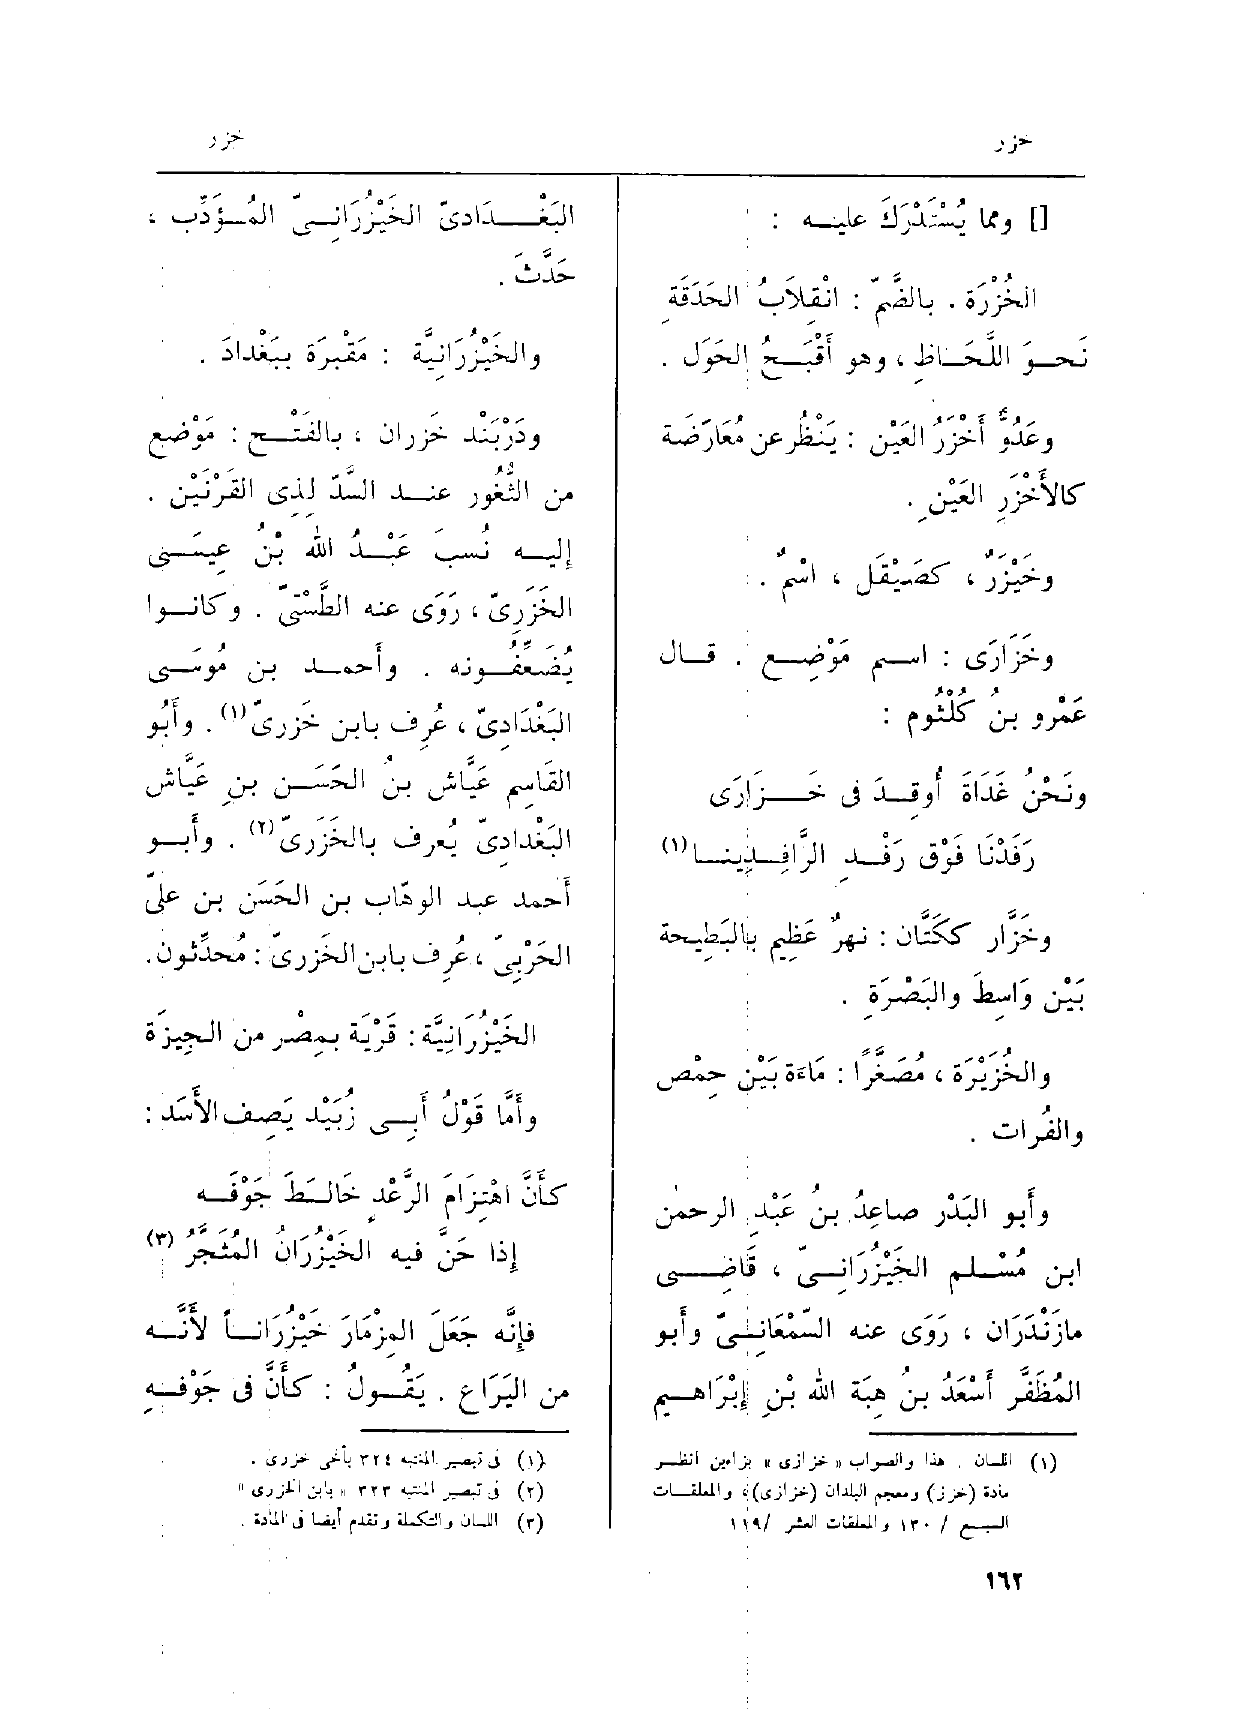 خزر
خزر
[] ومما يُسْتَدْرَكُ عليــه :
الخُزْرَة . بالضَّمّ : انْقِلاَبُ الحَدَقَةِ
نَحــوَ اللَّحَــاظِ ، وهو أَقْبَــحُ الحَوَلِ .
وعَدُوٌّ أَخْزَرُ العَيْنِ : يَنْظُر عن مُعَارَضَة
كالأَخْزَرِ العَيْنِ .
وخَيْزَرٌ ، كصَيْقَل ، اسْمٌ .
وخَزَارَى : اســم مَوْضِــع . قــال
عَمْرو بن كُلْثُوم :
ونَحْنُ غَدَاةَ أُوقِــدَ فى خَــزَارَى
رَفَدْنَا فَوْقَ رَفْــدِ الرَّافِــدِينــا (١)
وخَزَّار ككَتَّان : نهرٌ عَظِيم بالبَطِيحة
بَيْن وَاسِطَ والبَصْرَةِ .
والخُزَيْرَة ، مُصَغَّرًا : مَاءَة بَيْن حِمْص
والفُرات .
وأَبو البَدْر صاعِدُ بنُ عَبْدِ الرحمن
ابن مُسْلــم الخَيْزُرَانِــىّ ، قَاضِــى
مازَنْدَرَان ، رَوَى عنه السَّمْعَانِــىّ وأَبو
المُظَفَّر أَسْعَدُ بنُ هِبَة الله بْنِ إِبْرَاهــيم
(١) اللسان . هذا والصواب « خزازى » بزاءين انظــر
مادة (خزز) ومعجم البلدان (خزازى)، والمعلقــات
السبــع / ١٣٠ والمعلقات العشر /١١٩
البَغْــدَادىّ الخَيْزُرَانِــىّ المُــؤَدِّب ،
حَدَّثَ .
والخَيْزُرَانِيَّة : مَقْبَرَة ببَغْدادَ .
ودَرْبَنْد خَزَران ، بالفَتْــح : مَوْضِع
من الثُّغُور عنــد السَّدّ لِذِى القَرْنَيْنِ .
إِليــه نُسِبَ عَبْــدُ الله بْنُ عِيسَــى
الخَزَرِىّ ، رَوَى عنه الطَّسْتِىّ . وكانــوا
يُضَعِّفُــونه . وأَحمــد بن مُوسَــى
البَغْدَادِىّ ، عُرِف بابن خَزَرىّ (١) . وأَبُو
القَاسِم عَيَّاش بنُ الحَسَــن بنِ عَيَّاش
البَغْدادِىّ يُعرف بالخَزَرىّ (٢) . وأَبــو
أَحمد عبد الوهّاب بن الحَسَن بن علىّ
الحَرْبِىّ ، عُرِف بابن الخَزَرىّ : مُحدِّثون.
الخَيْزُرَانِيَّة : قَرْيَة بمِصْر من الجِيزَة
وأَمَّا قَوْلُ أَبِــى زُبَيْد يَصِف الأَسَد :
كأَنَّ اهْتِزَامَ الرَّعْدِ خَالَــطَ جَوْفَــه
إِذا حَنَّ فيه الخَيْزُرَانُ المُثَجَّرُ (٣)
فإِنَّه جَعَلَ المِزمَارَ خَيْزُرَانــاً لأَنَّــه
من اليَرَاع . يَقُــولُ : كأَنَّ فى جَوْفِــهِ
(١) فى تبصير المنتبه ٣٢٤ بأخى خزرى .
(٢) فى تبصير المنتبه ٣٢٣ « بابن الخزرى »
(٣) اللسان والتكملة وتقدم أيضا فى المادة .
١٦٢